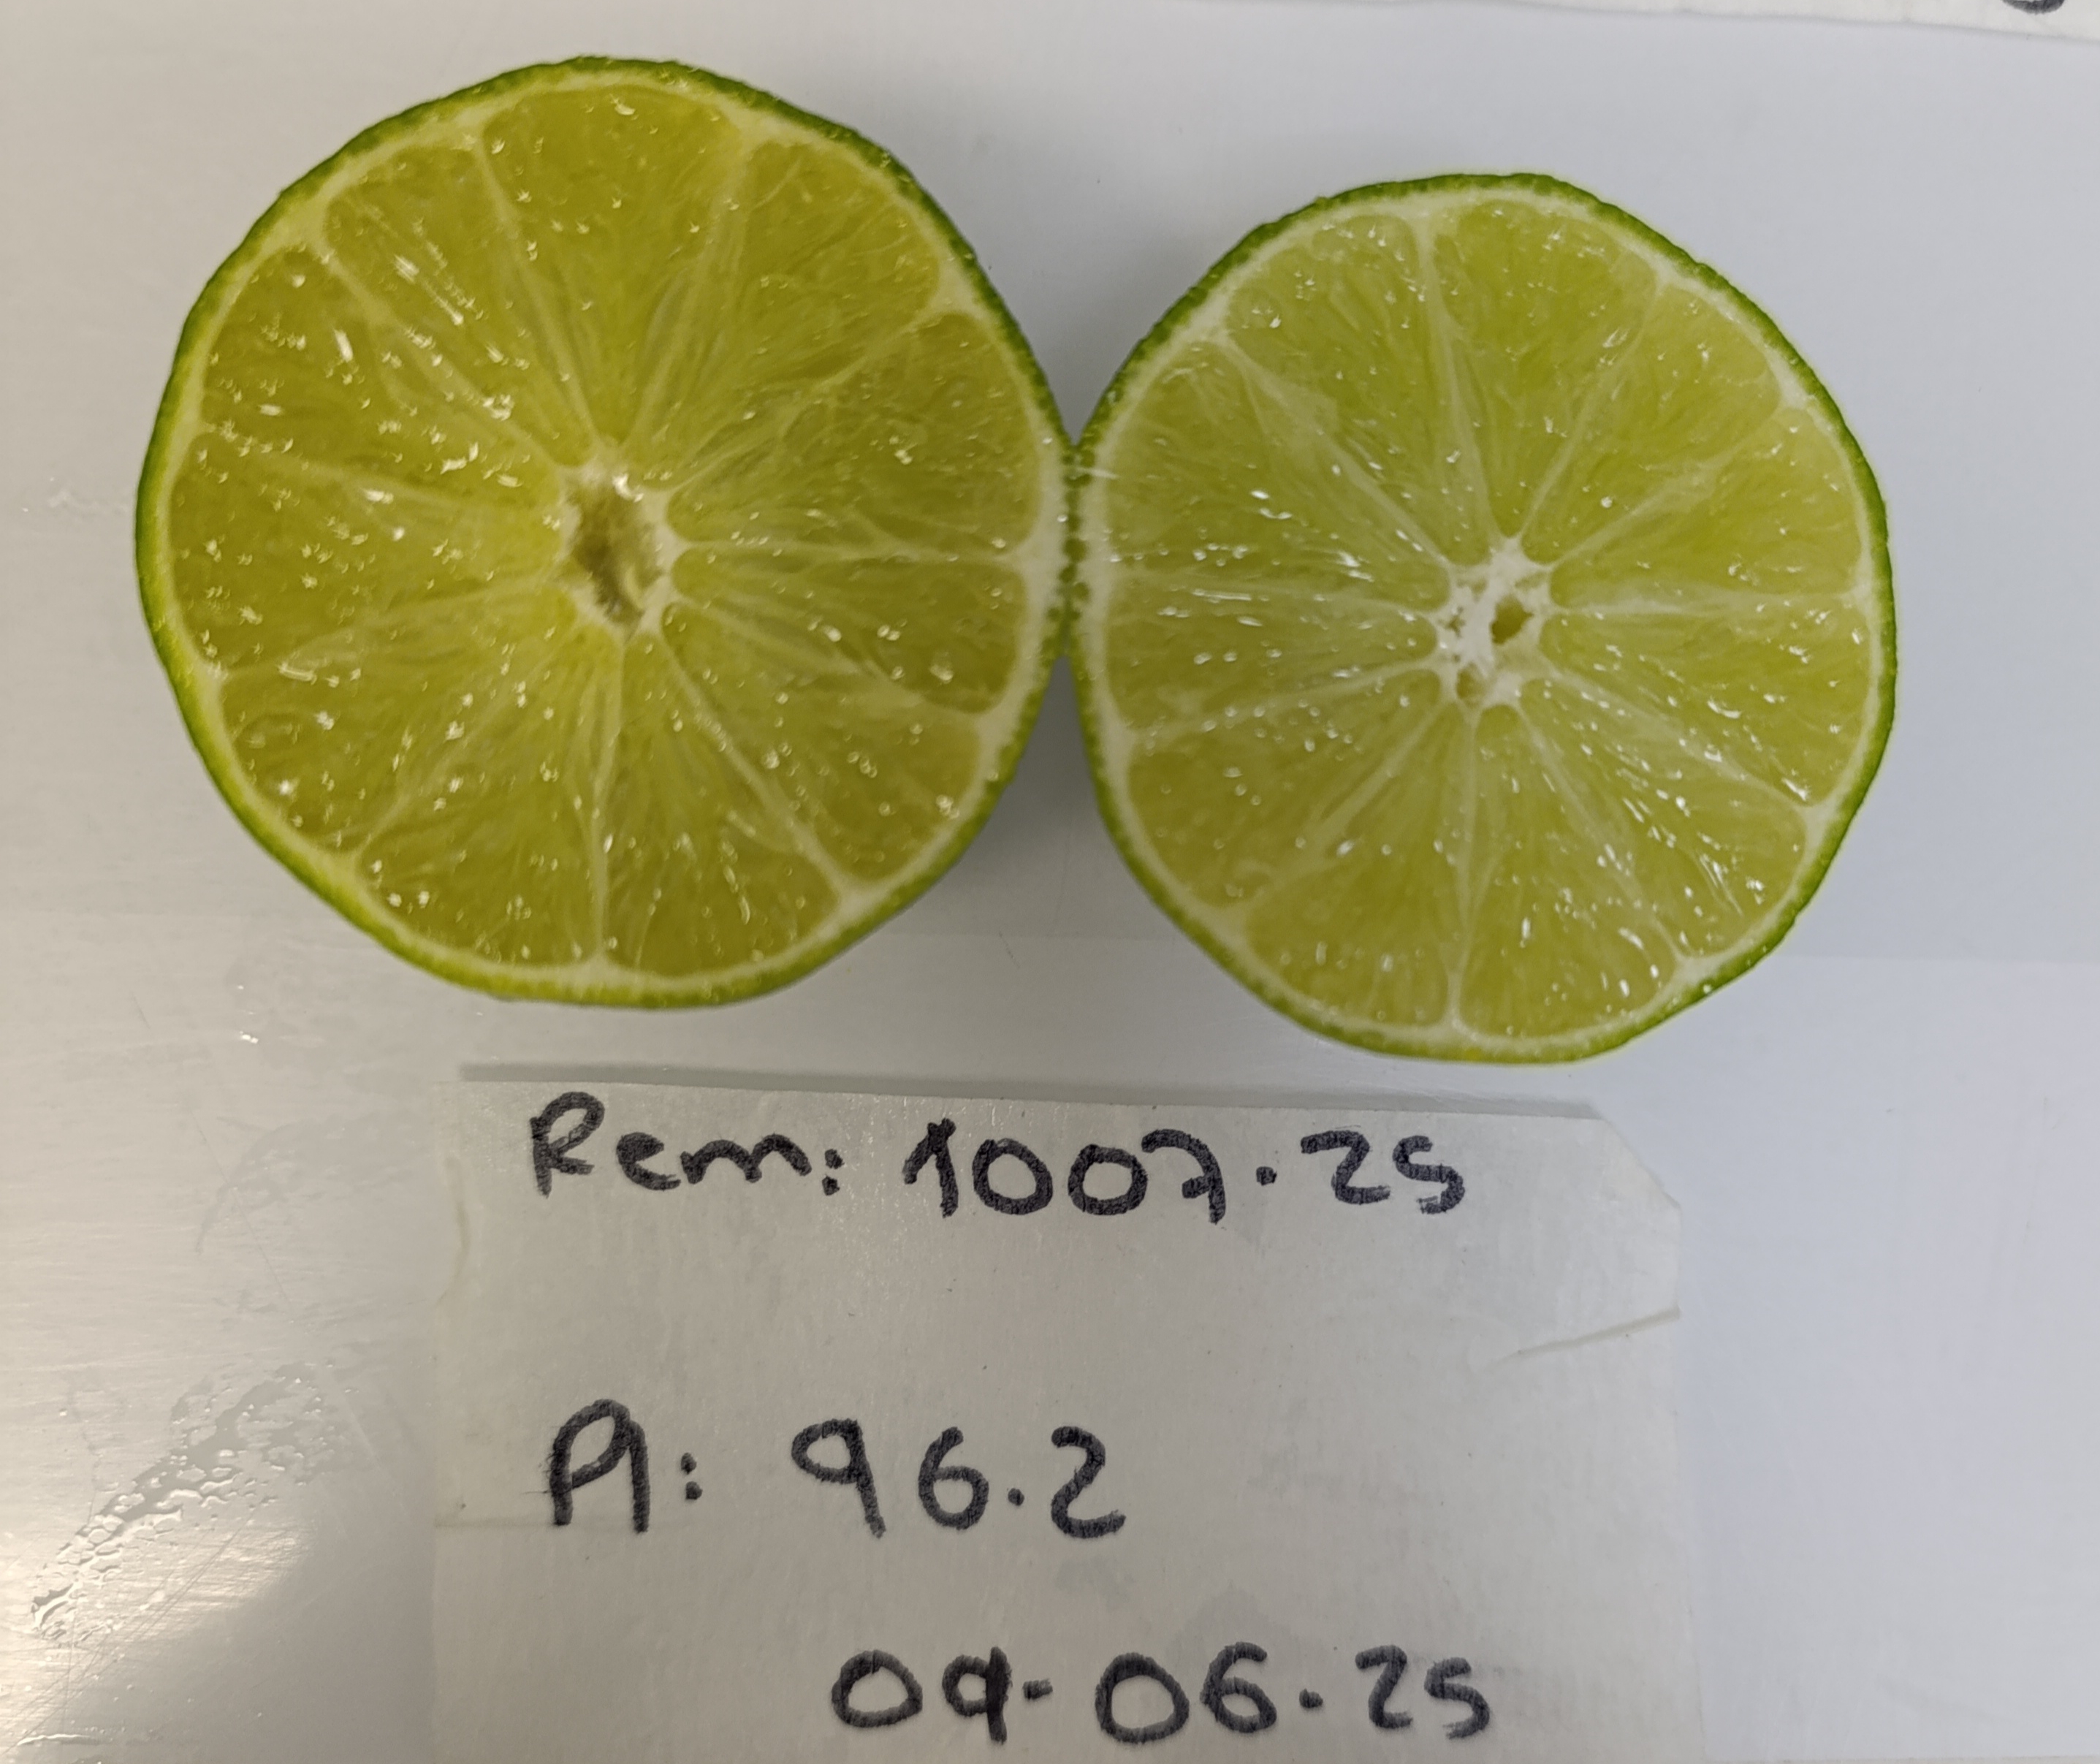 Rem: 1007.25
A: 96.2
09-06.25